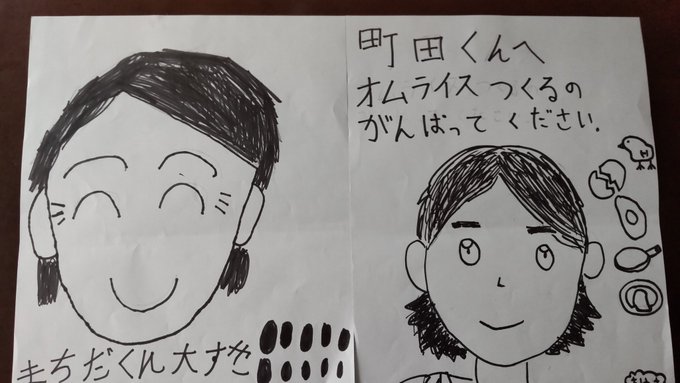 町田くんへ
オムライスつくるの
がんばってください.
まちだくん大すき